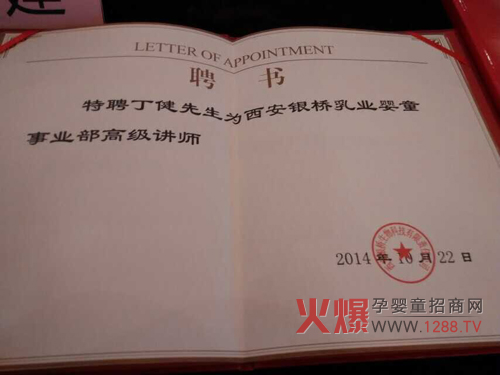 LETTER OF APPOINTMENT
聘 书
特聘丁健先生为西安银桥乳业婴童
事业部高级讲师
2014 年 10 月 22 日
火爆孕婴童招商网
www.1288.TV